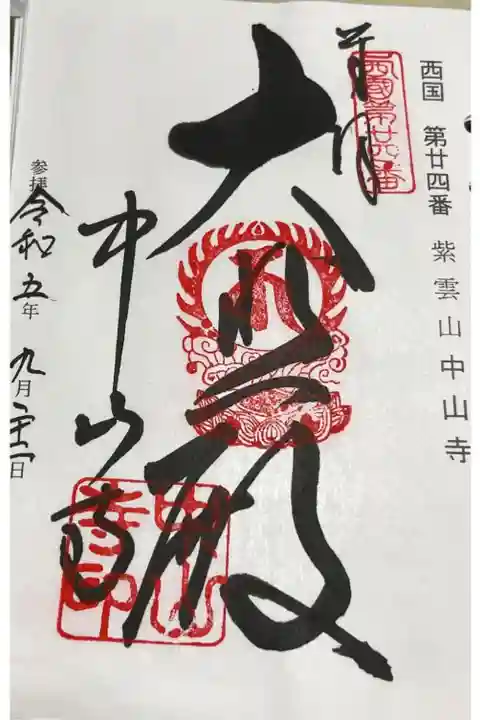 西国 第廿四番 紫雲山中山寺
奉拝
西国第廿四番
大悲殿
中山寺
中山寺印
参拝 令和五年 九月二十一日